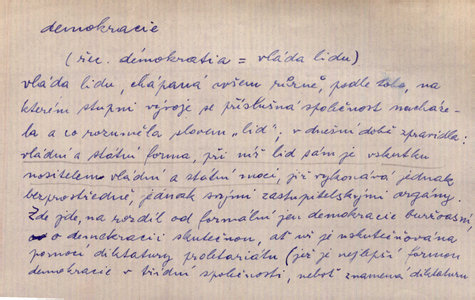 demokracie
(řec. démokratia = vláda lidu)
vláda lidu, chápaná ovšem různě, podle toho, na
kterém stupni vývoje se příslušná společnost nacháze-
la a co rozuměla slovem „lid“; v dnešní době zpravidla:
vládní a státní forma, při níž lid sám je vskutku
nositelem vládní a státní moci, již vykonává jednak
bezprostředně, jednak svými zastupitelskými orgány.
Zde jde, na rozdíl od formální jen demokracie buržoasní,
o demokracii skutečnou, ať už je uskutečňována
pomocí diktatury proletariátu (jež je nejlepší formou
demokracie v třídní společnosti, neboť znamená diktaturu